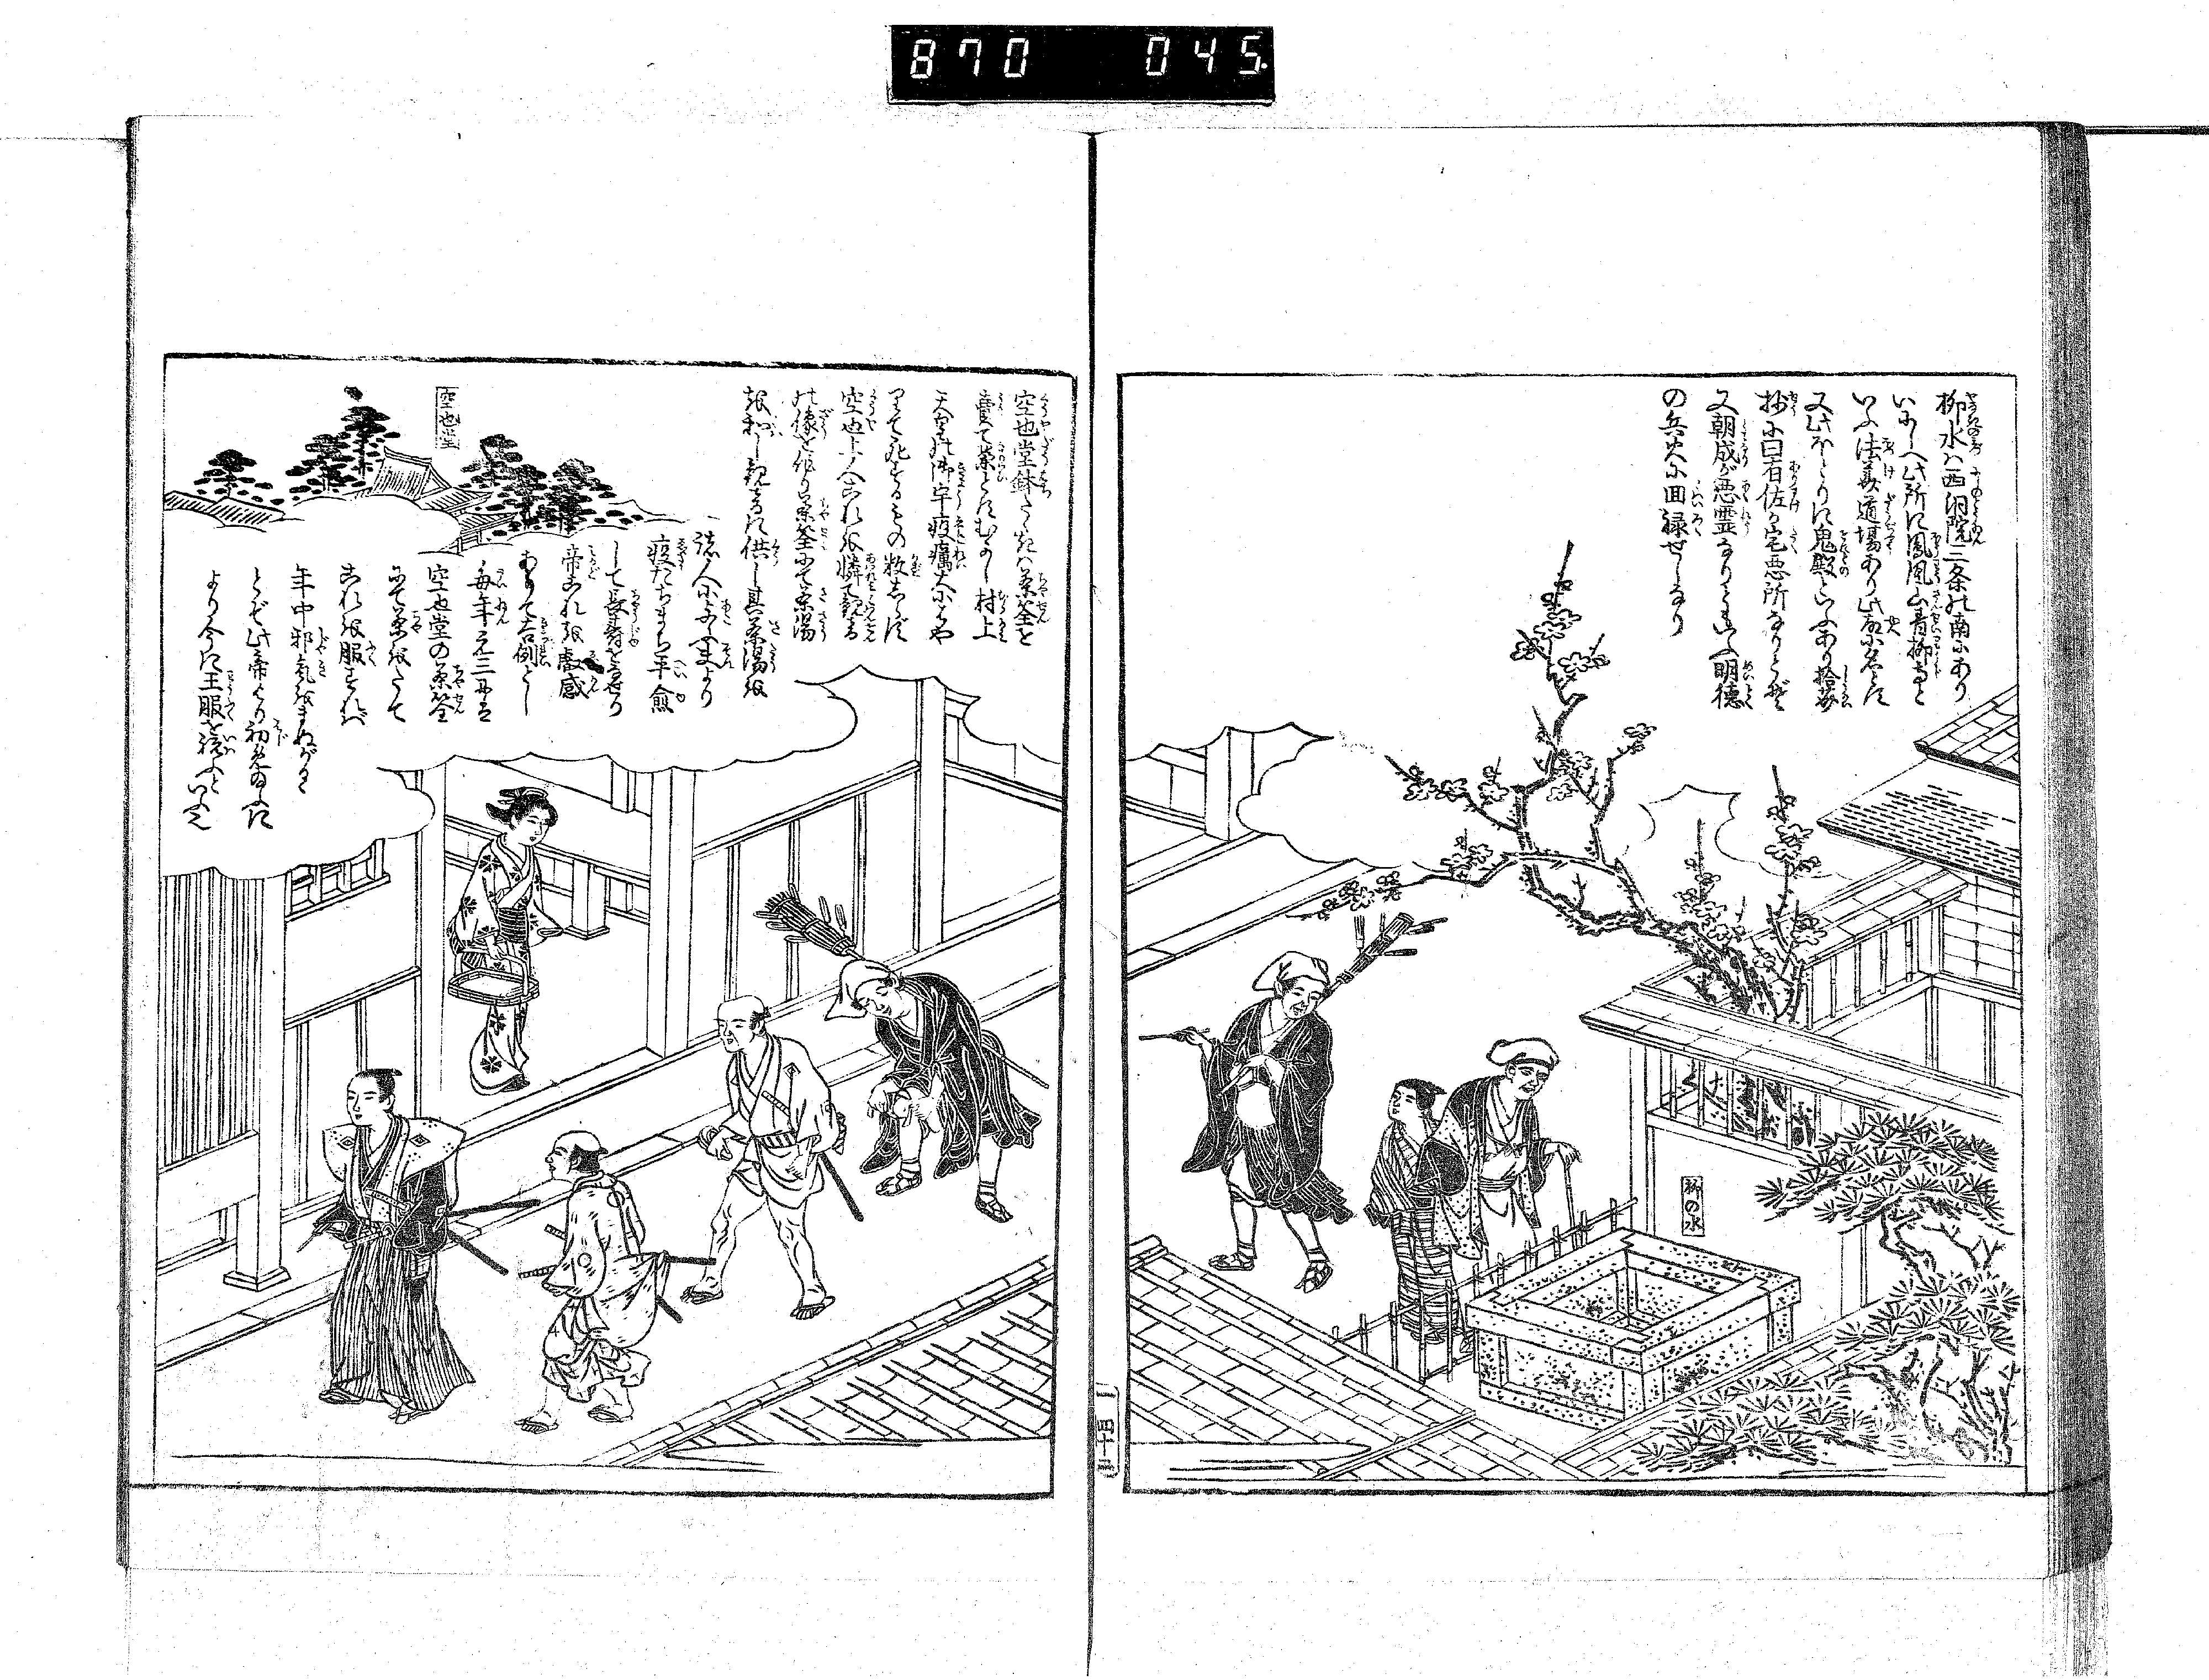 870 045
柳水は西洞院三条の南にあり
いにしへ此所に鳳凰山青柳寺と
いふ法華道場あり此故に名とす
又此ほとりに鬼殿といふあり拾芥
抄に曰有佐が宅悪所なりとぞ
又朝成が悪霊なりともいへり明徳
の兵火に回禄せしなり
柳の水
一
四十三
空也堂鉢たゝきは茶筌を
賣て業とすむかし村上
天皇の御宇疫癘大にはや
りて死するもの数しらず
空也上人これを憐て観音
の像を作り茶筌にて茶湯
を和し観音に供し其茶湯を
諸人にあたへ給ふより
疫たちまち平愈
して長寿を得たり
帝これを叡感
ありて吉例とし
毎年元三には
空也堂の茶筌
にて茶をたて
これを服すれば
年中邪気をまぬがる
とぞ此帝より初め給ふに
より今に王服を祝ふといへり
空也堂